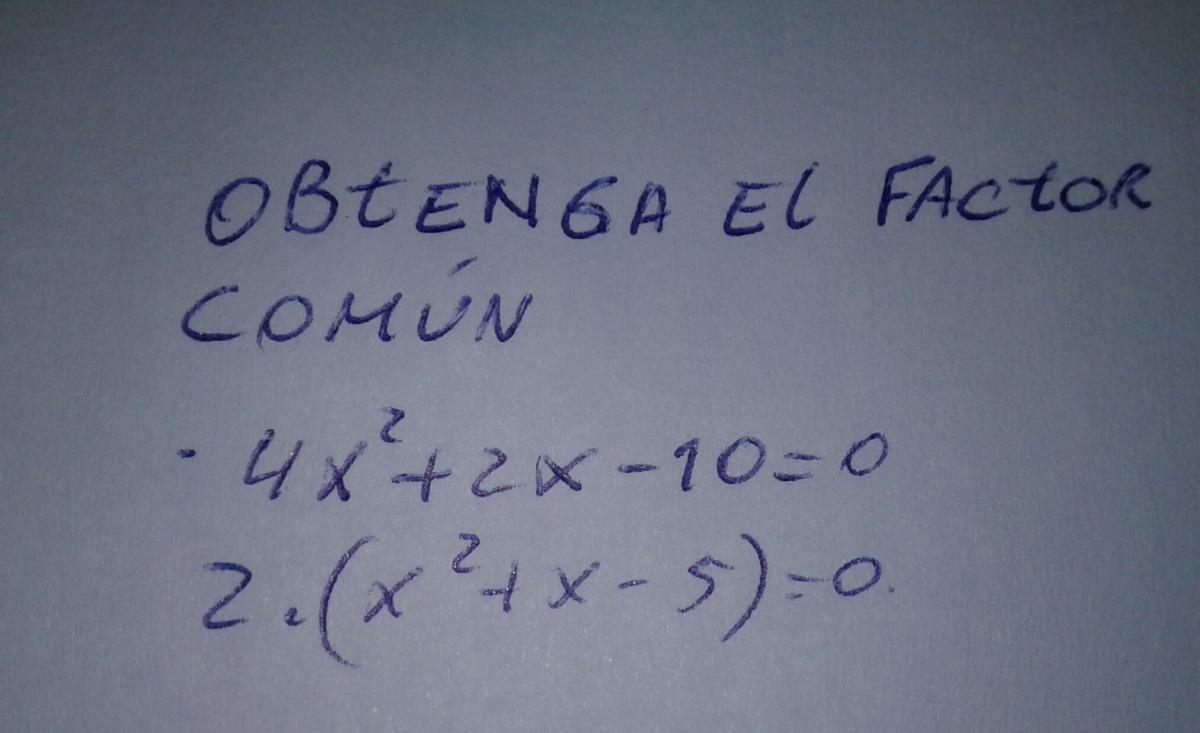 OBtENGA El FActOR
COMÚN
· 4x²+2x-10=0
2.(x²+x-5)=0.